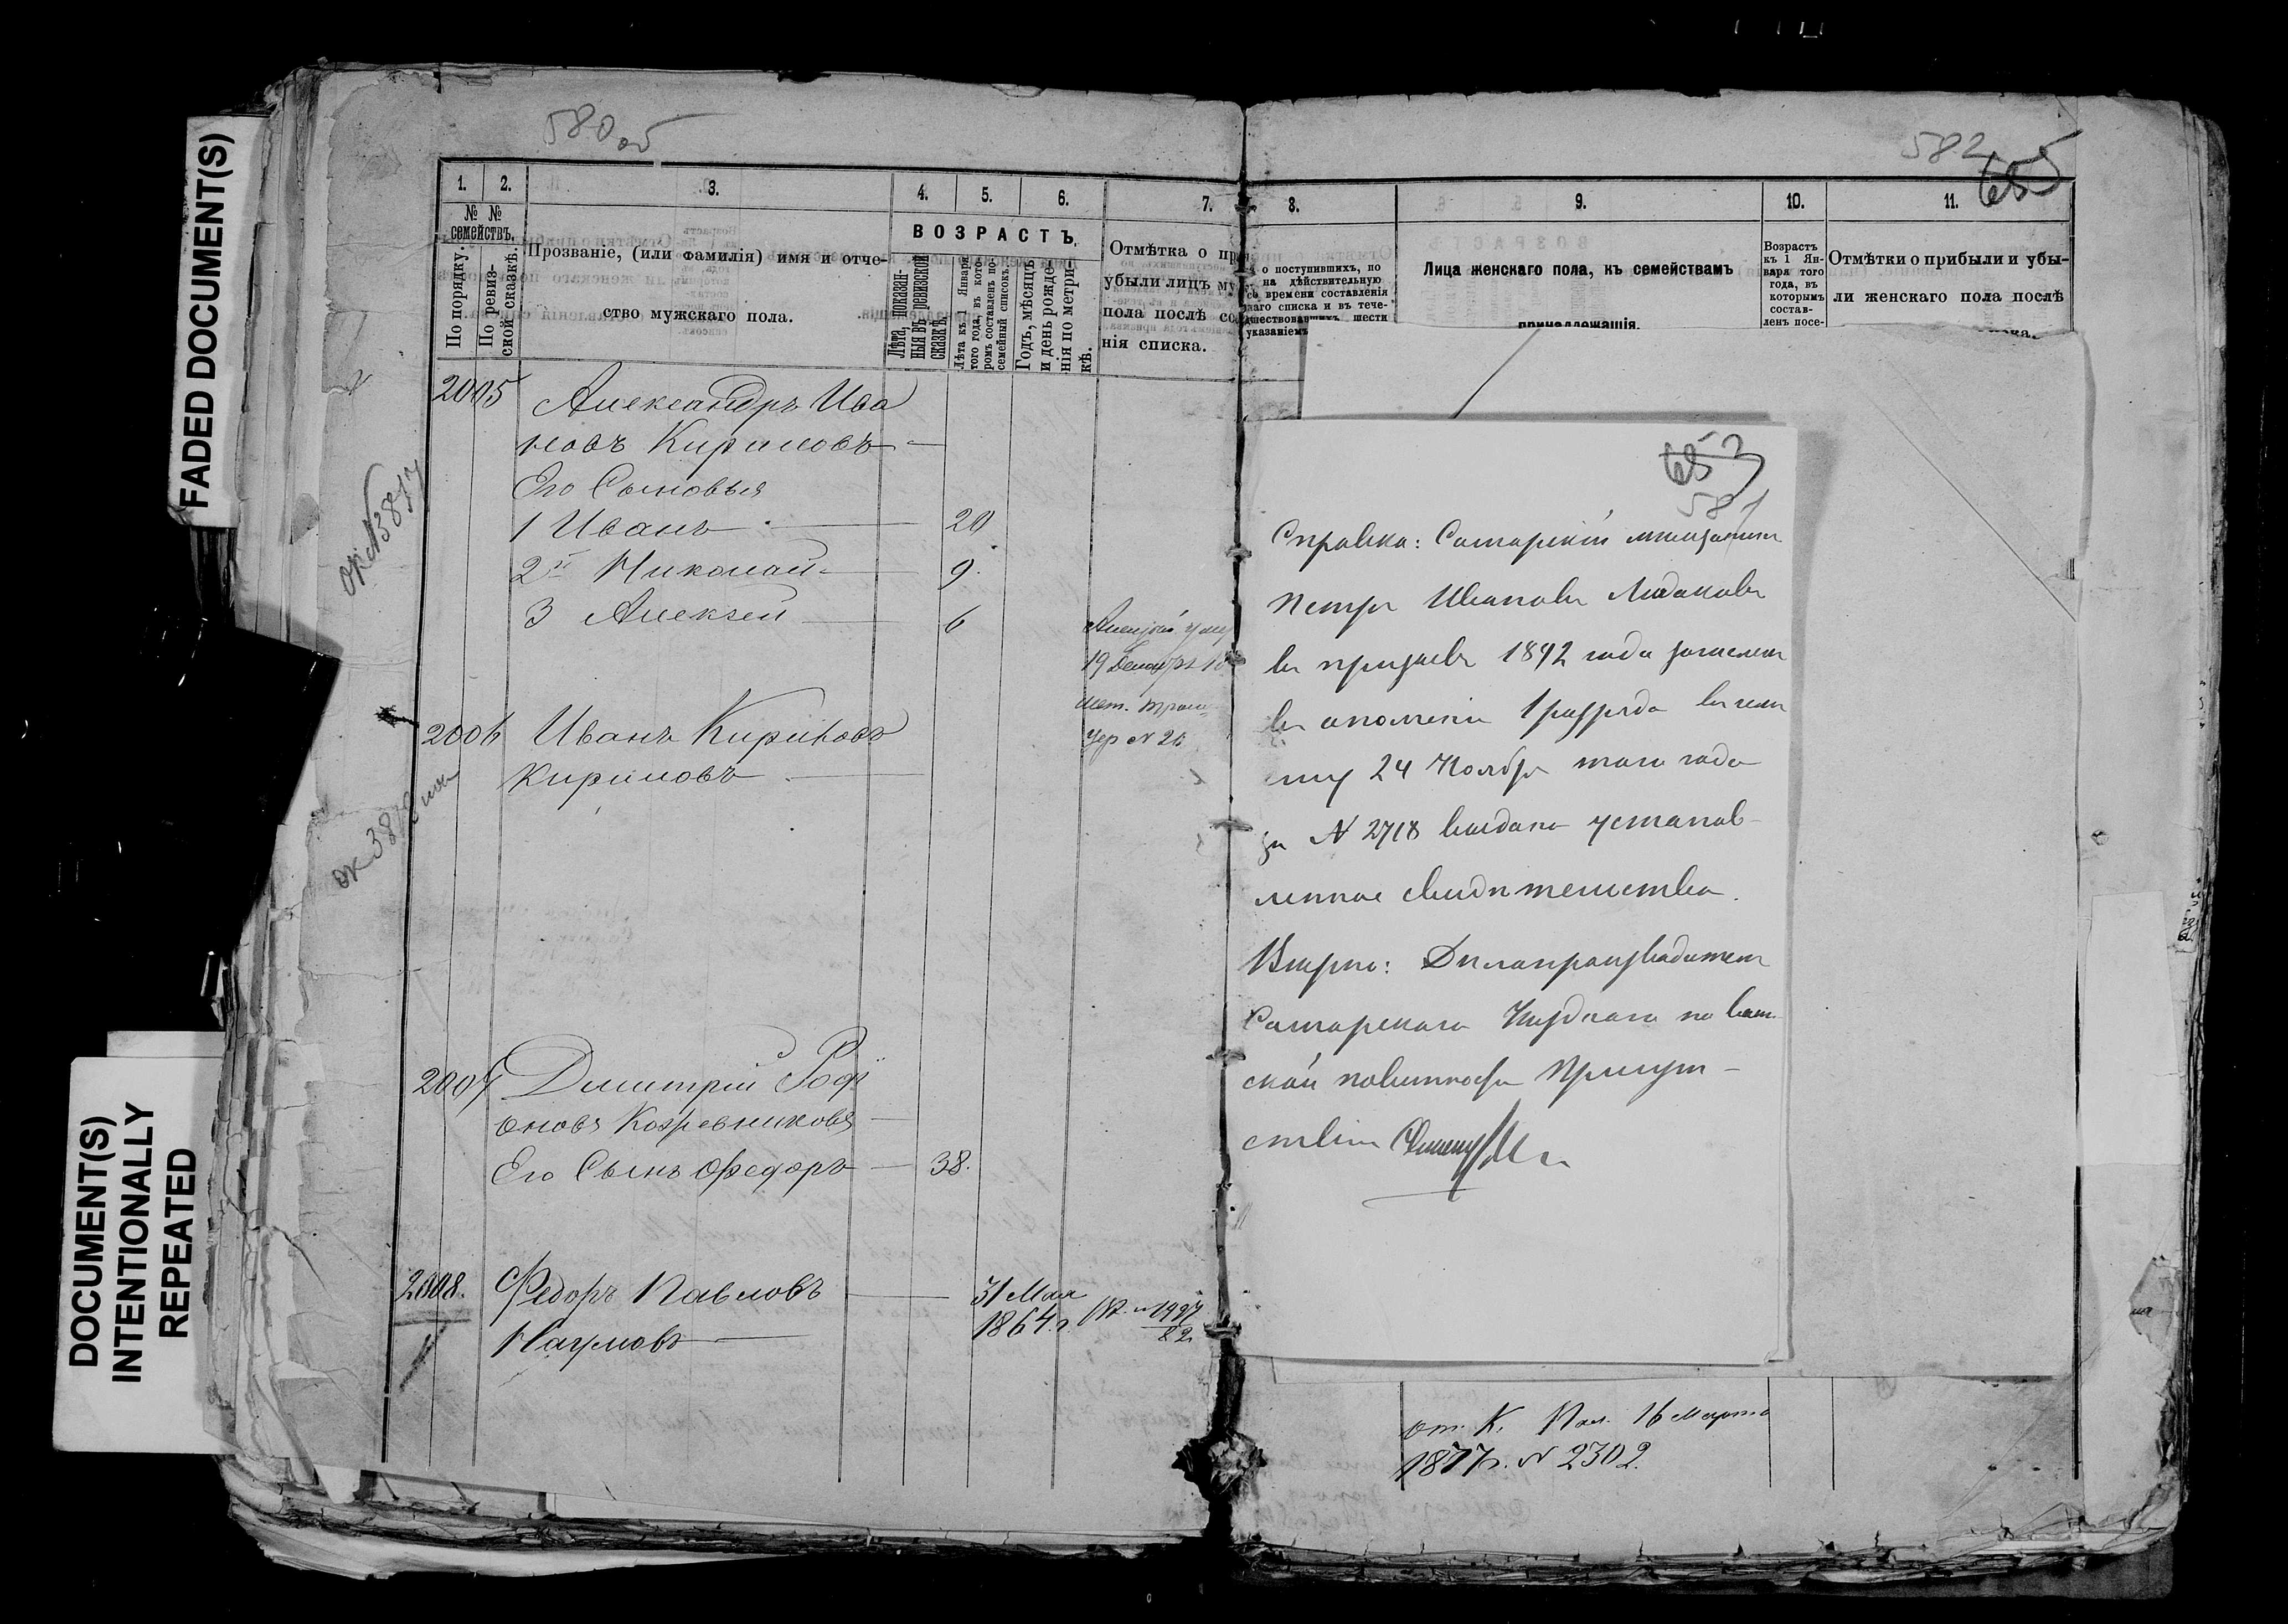 FADED DOCUMENT(S)
DOCUMENT(S)
INTENTIONALLY
REPEATED
580 об
1. 2. 3. 4. 5. 6. 7.
№ №
семействъ.
По порядку.
По ревиз-
ской сказкѣ.
Прозваніе, (или фамилія) имя и отче-
ство мужскаго пола.
ВОЗРАСТЪ.
Лѣта, показан-
ныя въ ревизской
сказкѣ.
Лѣта къ 1 Января
того года, въ кото-
ромъ составленъ по-
семейный списокъ.
Годъ, мѣсяцъ
и день рожде-
нія по метри-
кѣ.
Отмѣтка о пр
убыли лицъ му
пола послѣ со
нія списка.
2005 Александръ Ива
новъ Кириловъ
Его Сыновья
1 Иванъ 20
2й Николай 9
3 Алексей 6
19 Декабря 18
мет. Троиц
Цер № 26
2006 Иванъ Кириловъ
Кириловъ
2007 Дмитрій
оновъ Кожевниковъ
Его Сынъ Федоръ 38.
2008. Федоръ Павловъ 31 Мая
Наумовъ 1864 г.
1497
82
582
655
8. 9. 10. 11.
о поступившихъ, по
на дѣйствительную
со времени составленія
наго списка и въ тече-
дшествовавшихъ шести
указаніемъ
Лица женскаго пола, къ семействамъ
принадлежащія.
Возрастъ
къ 1 Ян-
варя того
года, въ
которымъ
состав-
ленъ посе-
Отмѣтки о прибыли и убы-
ли женскаго пола послѣ
653
581
Справка: Самарскій мѣщанинъ
Петръ Ивановъ
въ призывъ 1892 года зачисленъ
въ ополченіе 1 разряда въ чемъ
ему 24 Ноября того года
за № 2718 выдано установ-
ленное свидѣтельство.
Вѣрно: Дѣлопроизводитель
Самарскаго Уѣзднаго по воин-
ской повинности Присут-
ствія
от. К. Пал. 16 Марта
1877 г. № 2302.